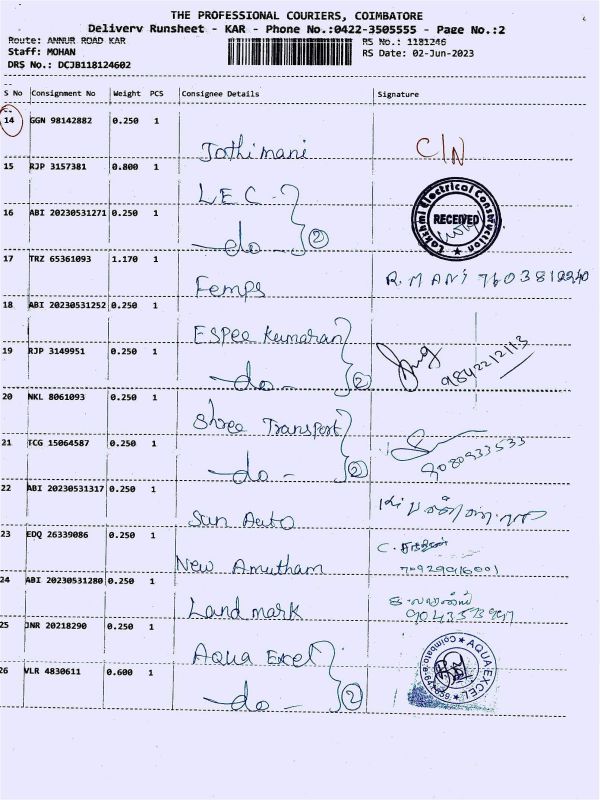 THE PROFESSIONAL COURIERS, COIMBATORE
Delivery Runsheet - KAR - Phone No.:0422-3505555 - Page No.:2
Route: ANNUR ROAD KAR
RS No.: 1181246
Staff: MOHAN
RS Date: 02-Jun-2023
DRS No.: DCJB118124602
S No Consignment No Weight PCS Consignee Details Signature
14 GGN 98142882 0.250 1 Jothimani C/N
15 RJP 3157381 0.800 1 L.E.C.
Lakshmi Electrical Construction
RECEIVED
16 ABI 20230531271 0.250 1 -do- 2
17 TRZ 65361093 1.170 1 Femps R. MANI
18 ABI 20230531252 0.250 1 ESPEE Kumaran
19 RJP 3149951 0.250 1 -do- 2 9842212113
20 NKL 8061093 0.250 1 Shree Transport
21 TCG 15064587 0.250 1 -do- 2 9080933533
22 ABI 20230531317 0.250 1 Sun Auto
23 EDQ 26339086 0.250 1 New Amutham
24 ABI 20230531280 0.250 1 Land mark
25 JNR 20218290 0.250 1 Aqua Excel
AQUA EXCEL
26 VLR 4830611 0.600 1 -do- 2